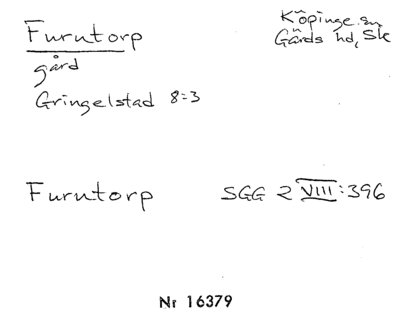 Furutorp
Köpinge sn
Gärds hd, Sk
gård
Gringelstad 8:3
Furutorp SGG 2 VIII:396
Nr 16379